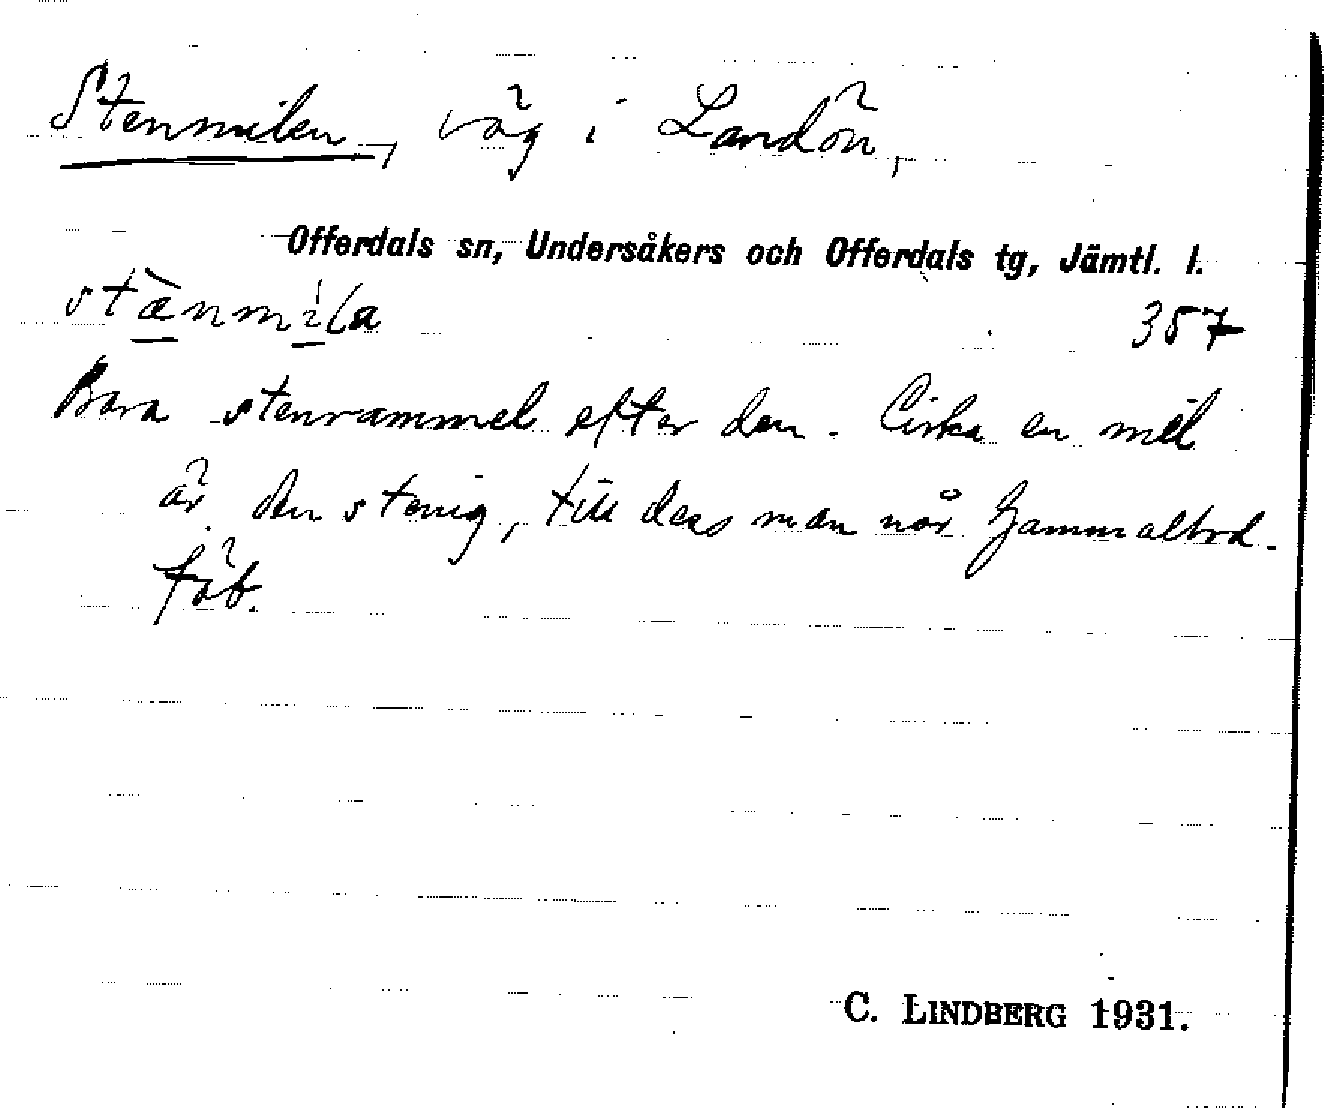 Stenmilen, väg i Landön,
Offerdals sn, Undersåkers och Offerdals tg, Jämtl. l.
stæ̀nmìla
357
Bara stenrammel efter den. Cirka en mil
är den stenig, till dess man når Gammalbod-
fäb.
C. LINDBERG 1931.